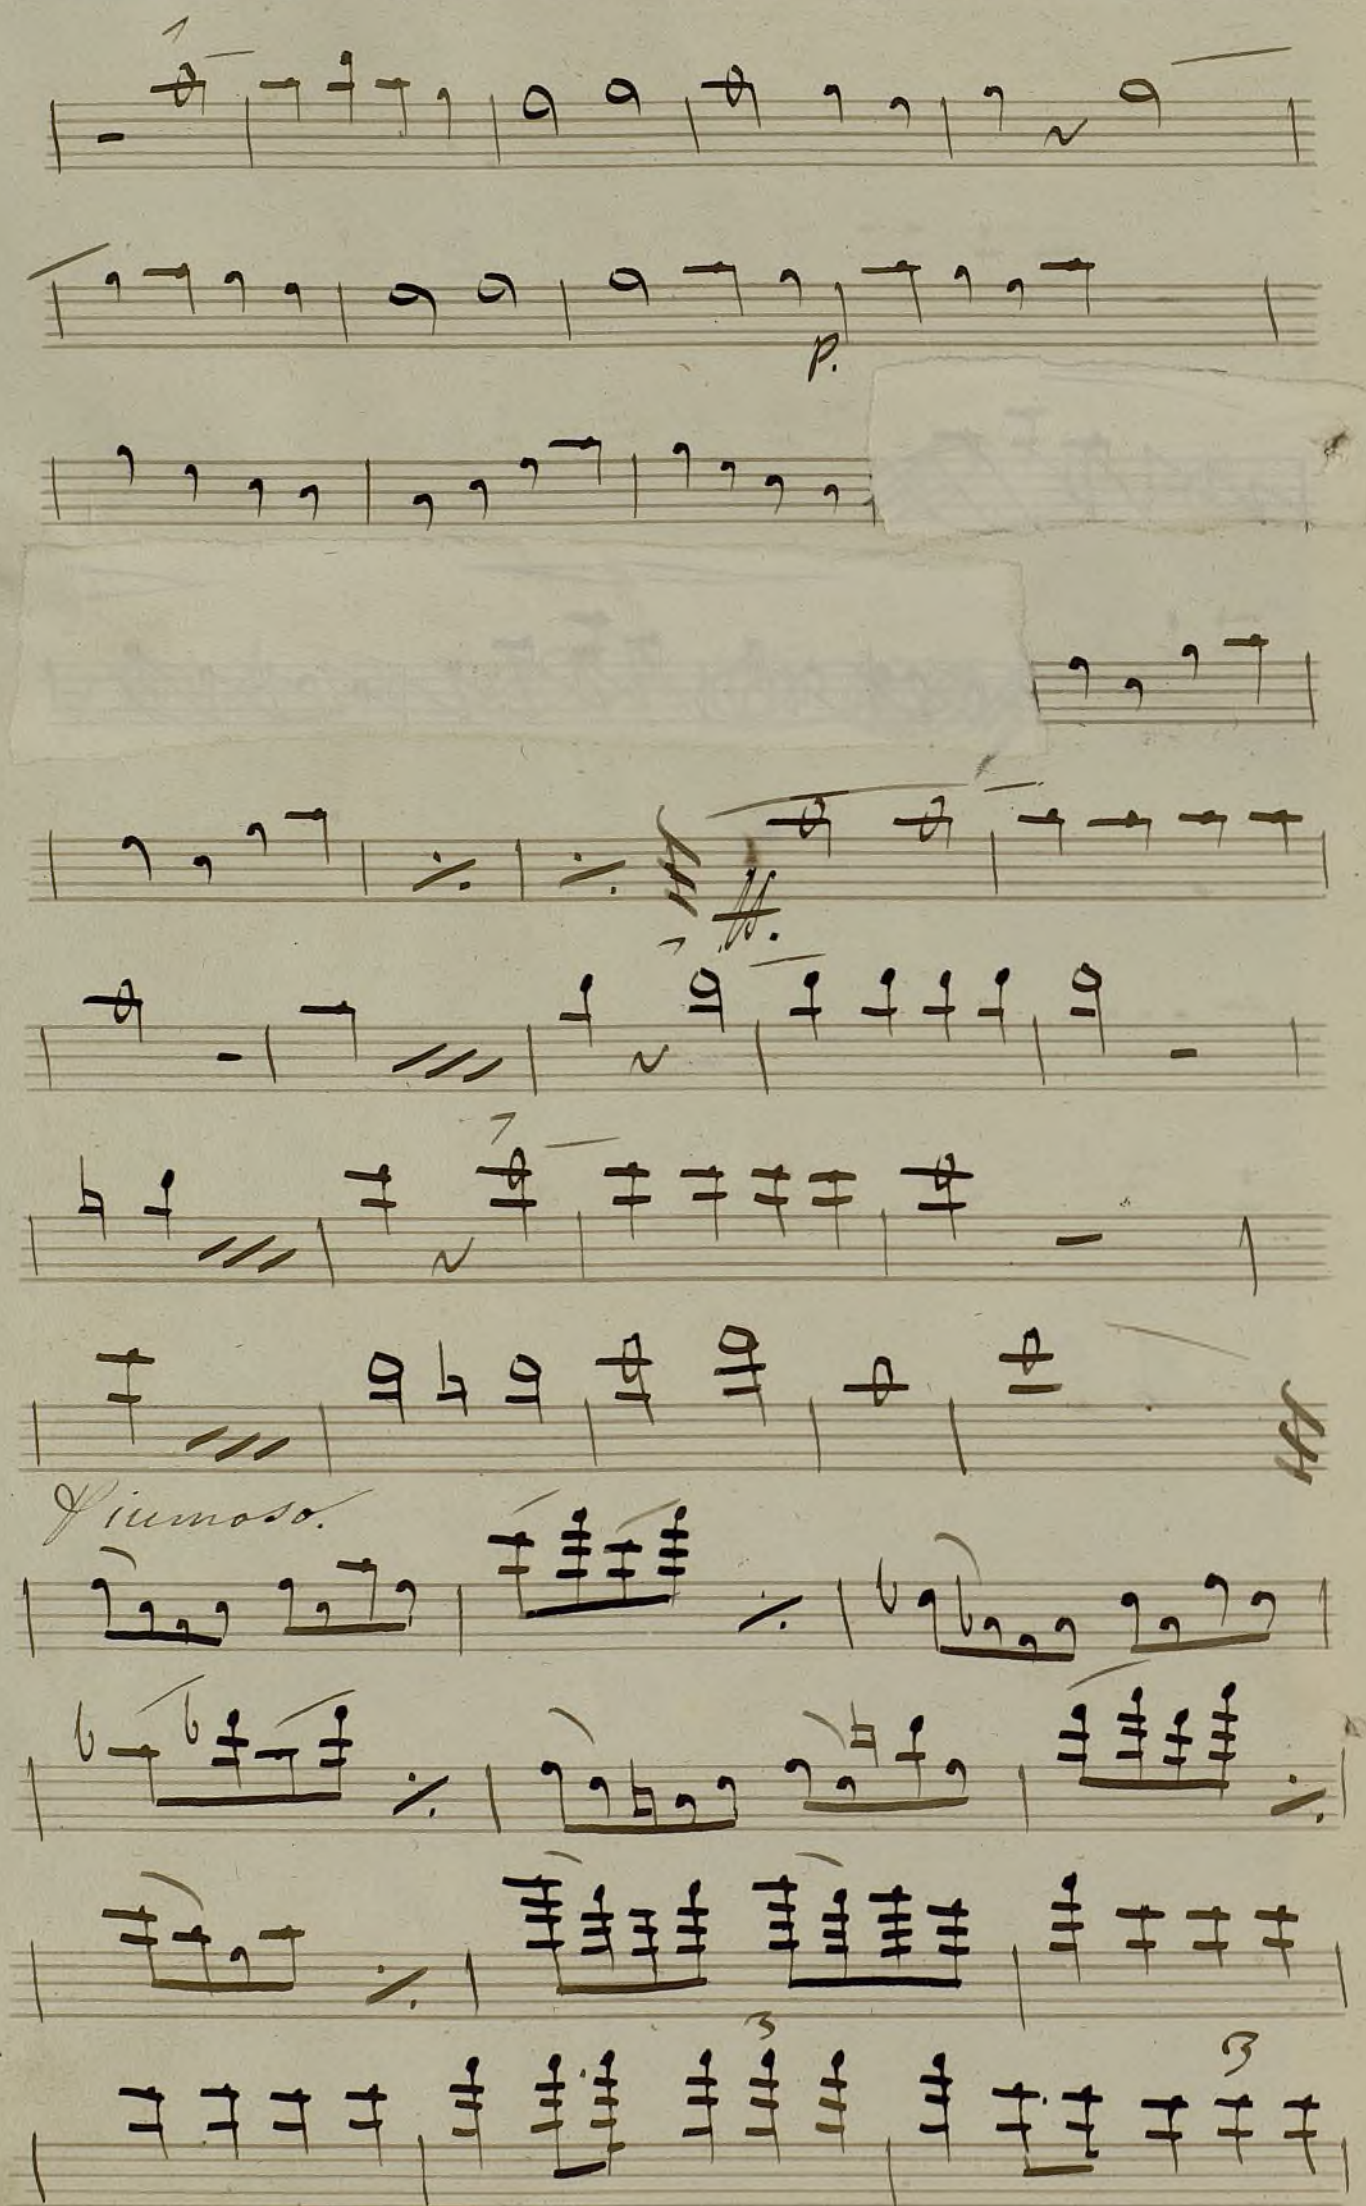 p.
ff.
Piumoso.
3
3